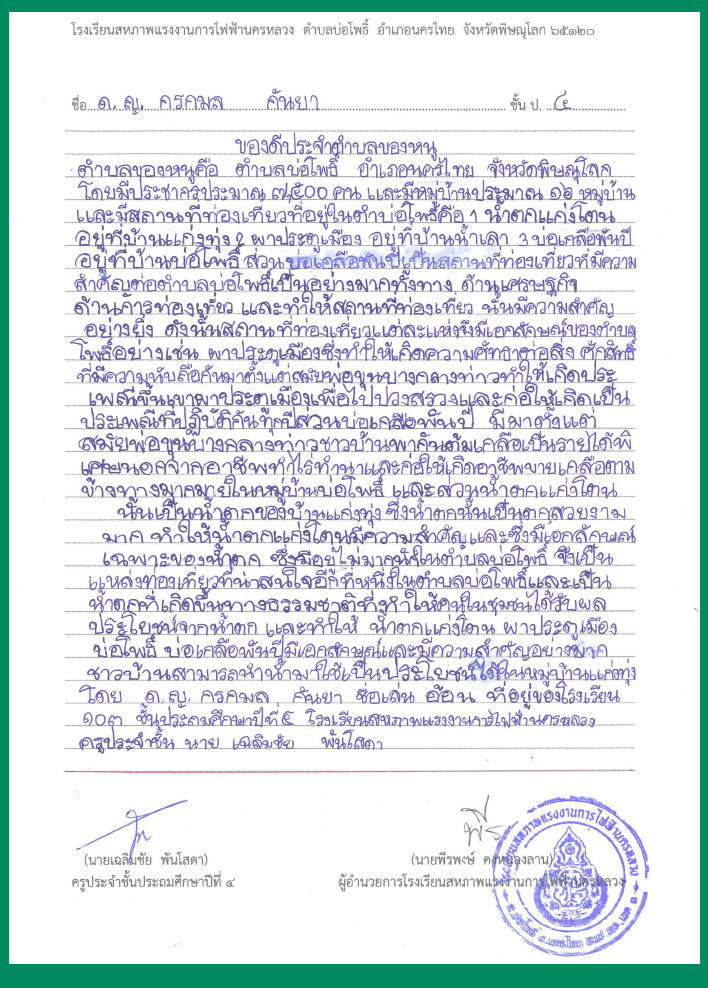 โรงเรียนสหภาพแรงงานการไฟฟ้านครหลวง ตำบลบ่อโพธิ์ อำเภอนครไทย จังหวัดพิษณุโลก ๖๕๑๒๐
ชื่อ ด.ญ. กรกมล กันยา ชั้น ป. ๔
ของดีประจำตำบลของหนู
ตำบลของหนูคือ ตำบลบ่อโพธิ์ อำเภอนครไทย จังหวัดพิษณุโลก
โดยมีประชากรประมาณ ๗,๕๐๐ คน และมีหมู่บ้านประมาณ ๑๖ หมู่บ้าน
และมีสถานที่ท่องเที่ยวที่อยู่ในตำบ่อโพธิ์คือ 1 น้ำตกแก่งโตน
อยู่ที่บ้านแก่งทุ่ง 2 ผาประตูเมือง อยู่ที่บ้านน้ำเลา 3 บ่อเกลือพันปี
อยู่ที่บ้านบ่อโพธิ์ ส่วน บ่อเกลือพันปีเป็นสถานที่ท่องเที่ยวที่มีความ
สำคัญต่อตำบลบ่อโพธิ์เป็นอย่างมากทั้งทาง ด้านเศรษฐกิจ
ด้านการท่องเที่ยว และทำให้สถานที่ท่องเที่ยว นั้นมีความสำคัญ
อย่างยิ่ง ดังนั้นสถานที่ท่องเที่ยวแต่ละแห่งจึงมีเอกลักษณ์ของตำบล
โพธิ์อย่างเช่น ผาประตูเมืองซึ่งทำให้เกิดความศัทธาต่อสิ่ง ศักสิทธิ์
ที่มีความนับถือกันมาตั้งแต่สมัยพ่อขุนบางกลางท่าวทำให้เกิดประ
เพณีขึ้นเขาผาประตูเมืองเพื่อไปบวงสรวงและก่อให้เกิดเป็น
ประเพณีที่ปฏิบัติกันทุกปีส่วนบ่อเกลือพันปี มีมาตั้งแต่
สมัยพ่อขุนบางกลางท่าวชาวบ้านพากันต้มเกลือเป็นรายได้พิ
เศษนอกจากอาชีพทำไร่ทำนาและก่อให้เกิดอาชีพขายเกลือตาม
ข้างทางมากมายในหมู่บ้านบ่อโพธิ์ และส่วนน้ำตกแก่งโตน
นั้นเป็นน้ำตกของบ้านแก่งทุ่ง ซึ่งน้ำตกนั้นเป็นตกสวยงาม
มาก ทำให้น้ำตกแก่งโตนมีความสำคัญและซึ่งมีเอกลักษณ์
เฉพาะของน้ำตก ซึ่งมีอยู่ไม่มากนักในตำบลบ่อโพธิ์ จึงเป็น
แหล่งท่องเที่ยวที่น่าสนใจอีกที่หนึ่งในตำบลบ่อโพธิ์และเป็น
น้ำตกที่เกิดขึ้นทางธรรมชาติที่ทำให้คนในชุมชนได้รับผล
ประโยชน์จากน้ำตก และทำให้ น้ำตกแก่งโตน ผาประตูเมือง
บ่อโพธิ์ บ่อเกลือพันปีมีเอกลักษณ์และมีความสำคัญอย่างมาก
ชาวบ้านสามารถนำน้ำมาใช้เป็นประโยชน์ได้ในหมู่บ้านแก่งทุ่ง
โดย ด.ญ. กรกมล กันยา ชื่อเล่น อ้อน ที่อยู่ของโรงเรียน
๑๐๓ ชั้นประถมศึกษาปีที่ ๔ โรงเรียนสหภาพแรงงานการไฟฟ้านครหลวง
ครูประจำชั้น นาย เฉลิมชัย พันโสดา
(นายเฉลิมชัย พันโสดา) (นายพีรพงษ์ คงหนองลาน)
ครูประจำชั้นประถมศึกษาปีที่ ๔ ผู้อำนวยการโรงเรียนสหภาพแรงงานการไฟฟ้านครหลวง
โรงเรียนสหภาพแรงงานการไฟฟ้านครหลวง